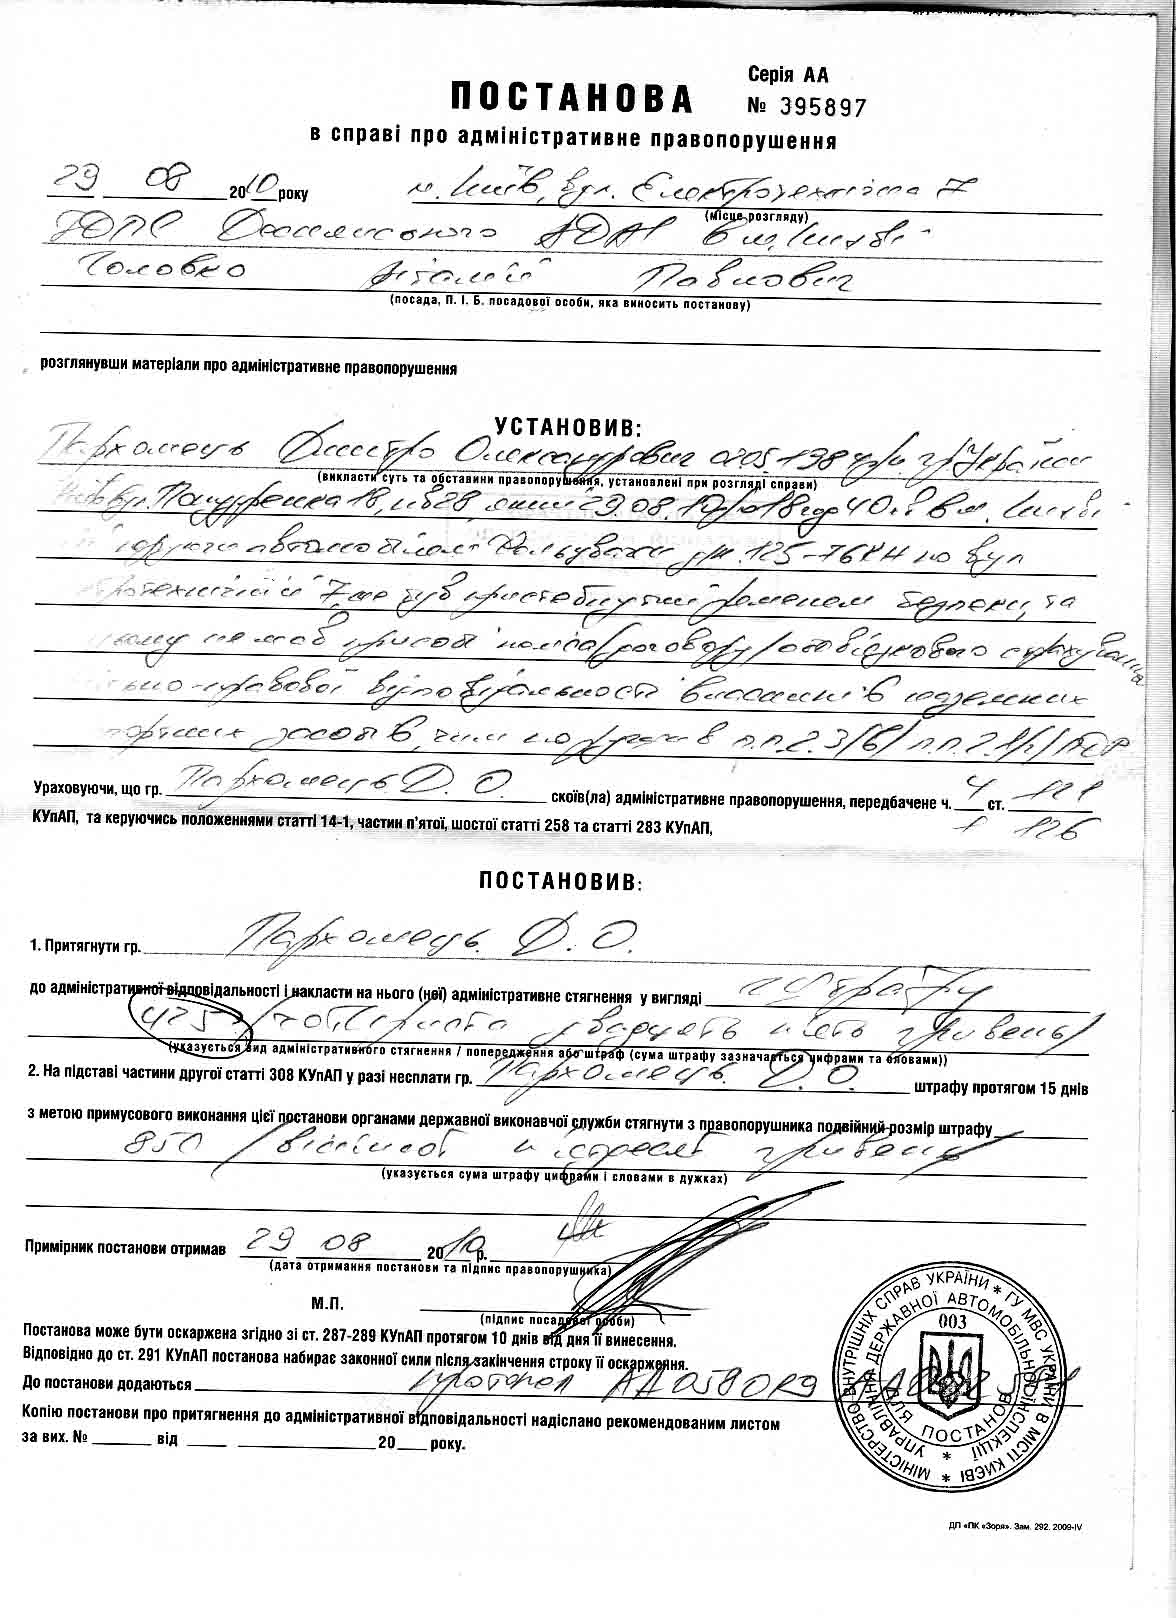 Серія АА
ПОСТАНОВА
№ 395897
в справі про адміністративне правопорушення
29 08 2010 року м. Київ, вул. Електротехнічна 7
(місце розгляду)
Деснянського в м. Києві
Головко Віталій Павлович
(посада, П. І. Б. посадової особи, яка виносить постанову)
розглянувши матеріали про адміністративне правопорушення
УСТАНОВИВ:
Пархомець Дмитро Олександрович України
(викласти суть та обставини правопорушення, установлені при розгляді справи)
18, кв 28, 29.08.10 18 год 40 в м. Києві
автомобілем 125-76КН по вул
7, не був пристебнутий ременем безпеки, та
не мав при собі поліса/договору/обов'язкового страхування
правової відповідальності власників наземних
засобів, чим порушив п.п. 2.3/в/ п.п. 2.1/ /ПДР
Ураховуючи, що гр. Пархомець Д. О. скоїв(ла) адміністративне правопорушення, передбачене ч. 4 ст. 121
КУпАП, та керуючись положеннями статті 14-1, частин п'ятої, шостої статті 258 та статті 283 КУпАП, 1 126
ПОСТАНОВИВ:
1. Притягнути гр. Пархомець Д. О.
до адміністративної відповідальності і накласти на нього (неї) адміністративне стягнення у вигляді штрафу
425 /чотириста двадцять п'ять гривень/
(указується вид адміністративного стягнення / попередження або штраф (сума штрафу зазначається цифрами та словами))
2. На підставі частини другої статті 308 КУпАП у разі несплати гр. Пархомець Д. О. штрафу протягом 15 днів
з метою примусового виконання цієї постанови органами державної виконавчої служби стягнути з правопорушника подвійний розмір штрафу
850 /вісімсот п'ятдесят гривень
(указується сума штрафу цифрами і словами в дужках)
Примірник постанови отримав 29 08 2010 р.
(дата отримання постанови та підпис правопорушника)
М.П.
(підпис посадової особи)
Постанова може бути оскаржена згідно зі ст. 287-289 КУпАП протягом 10 днів від дня її винесення.
Відповідно до ст. 291 КУпАП постанова набирає законної сили після закінчення строку її оскарження.
До постанови додаються протокол
Копію постанови про притягнення до адміністративної відповідальності надіслано рекомендованим листом
за вих. № від 20 року.
МІНІСТЕРСТВО ВНУТРІШНІХ СПРАВ УКРАЇНИ * ГУ МВС УКРАЇНИ В МІСТІ КИЄВІ *
УПРАВЛІННЯ ДЕРЖАВНОЇ АВТОМОБІЛЬНОЇ ІНСПЕКЇЇ *
003
ДЛЯ ПОСТАНОВ
ДП «ПК «Зоря». Зам. 292. 2009-IV